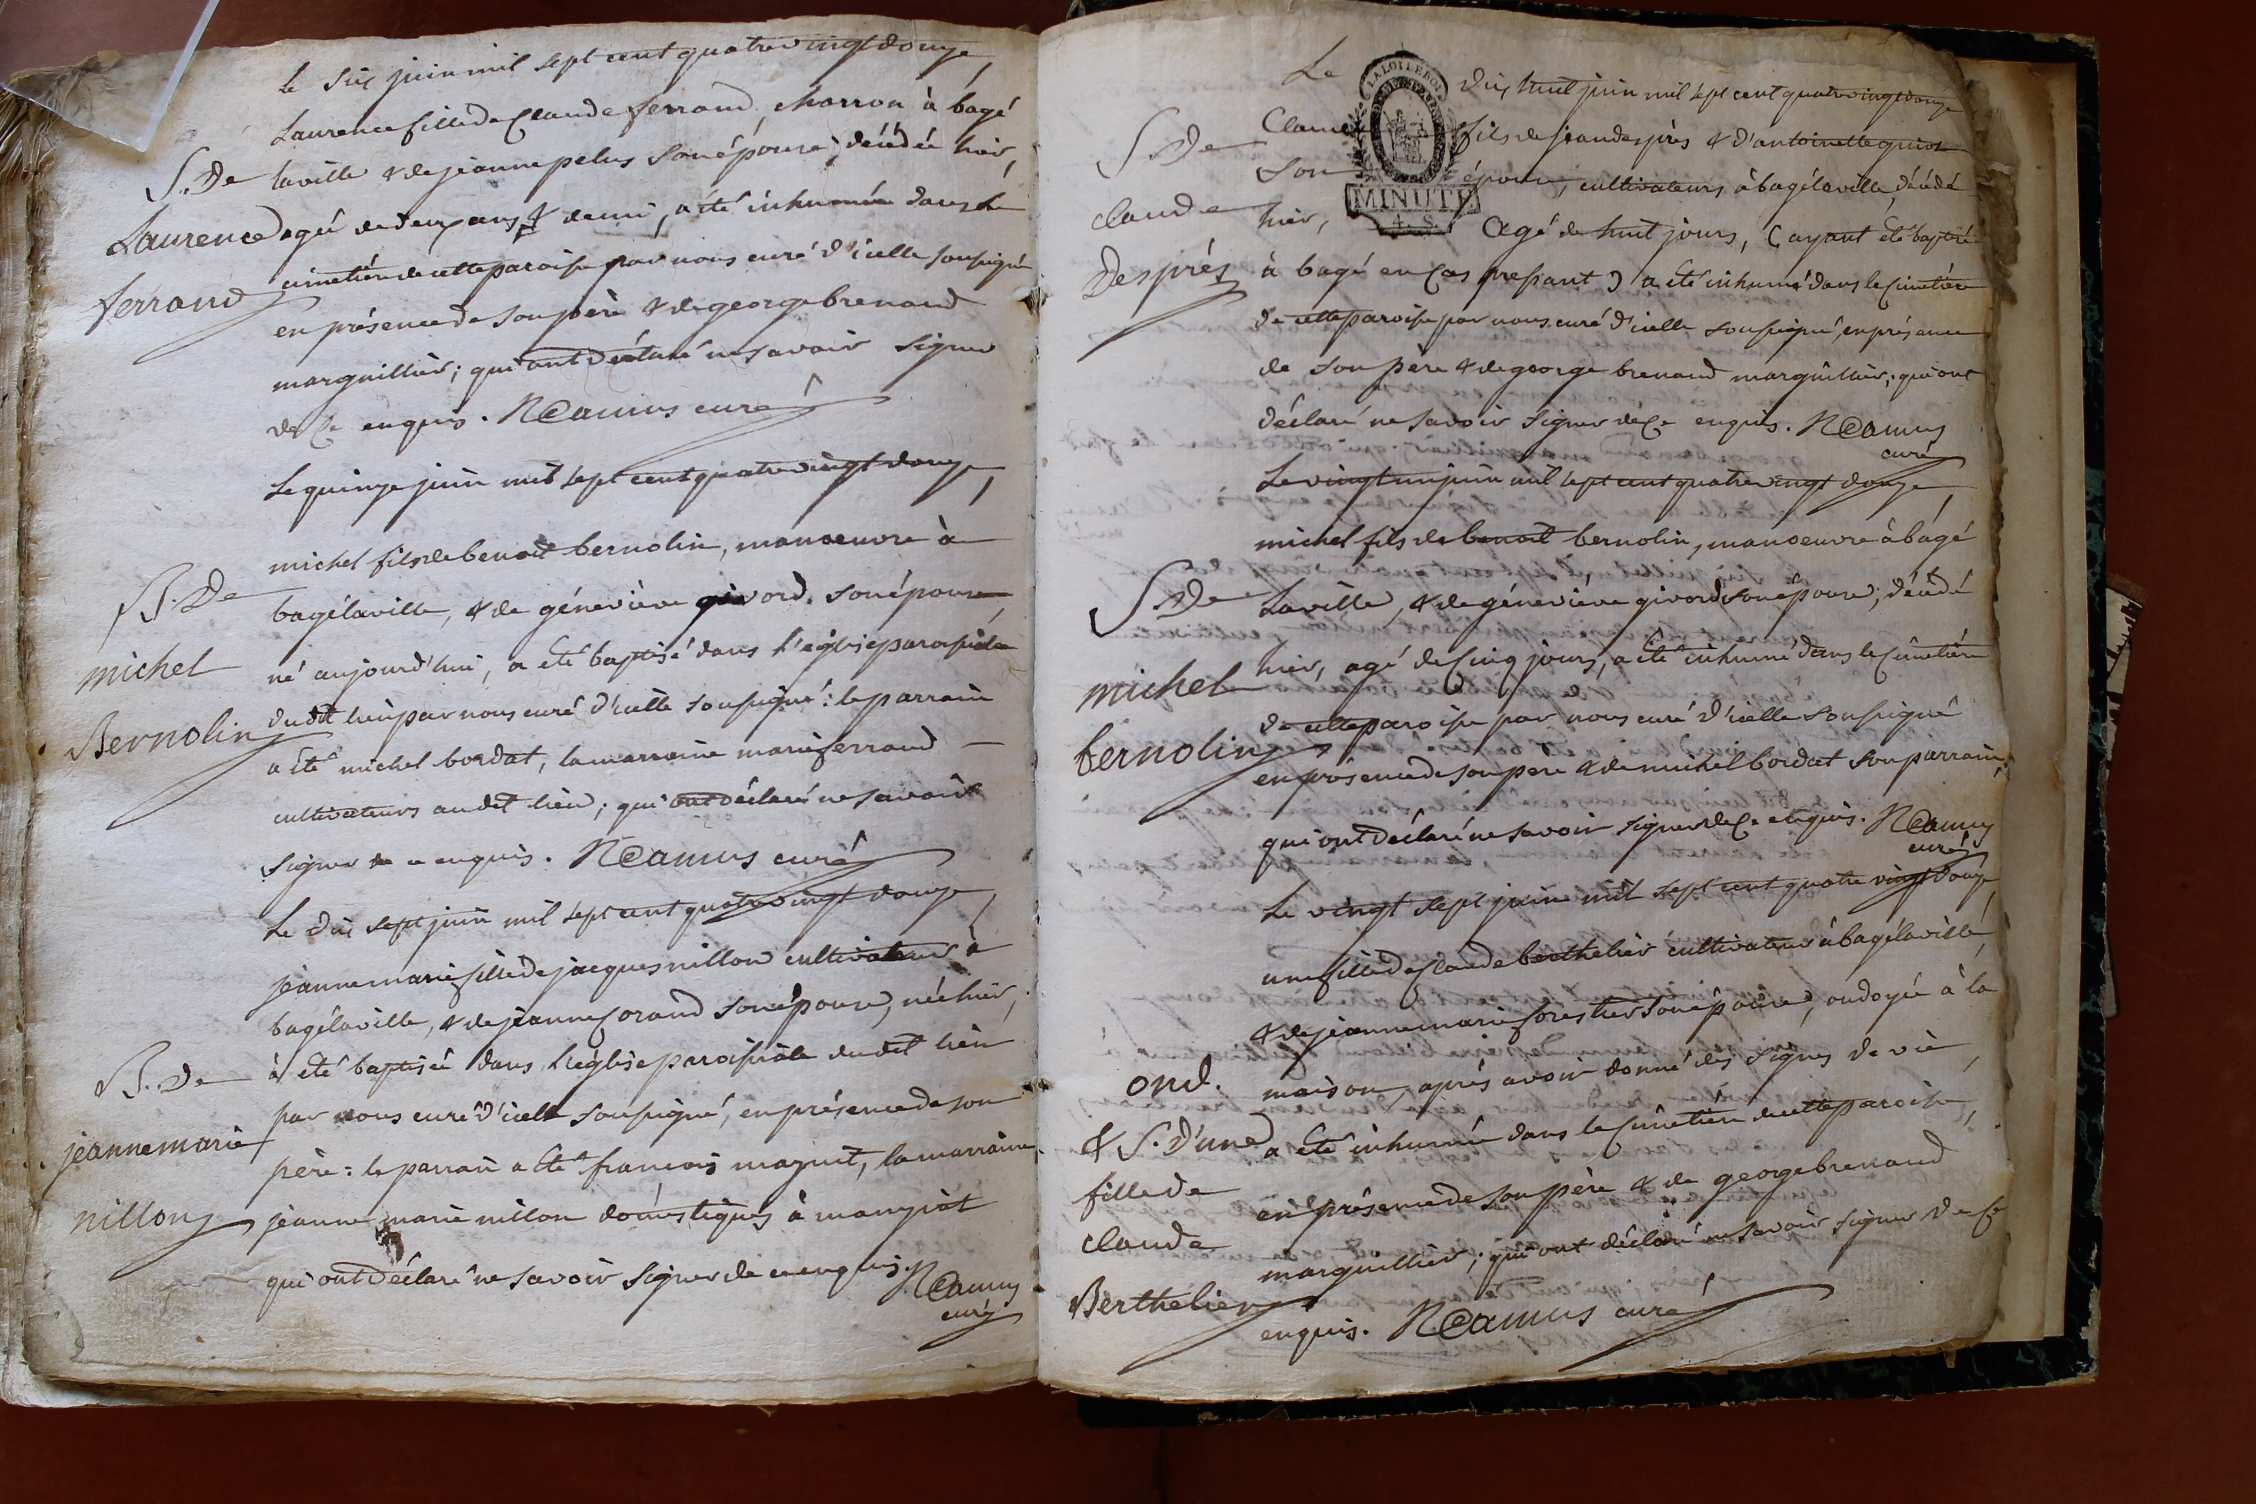 le six juin mil sept cent quatre vingt douze,
Laurence fille de Claude ferrand, charron à bagé
S. De laville & de jeanne pelus son épouse; décédée hier,
Laurence agée de deux ans & demi, a été inhumée dans le
ferrand cimetière de cette paroisse par nous curé d'icelle soussigné
en présence de son père & de george brenaud
marguillier; qui ont déclaré ne savoir signer
de ce enquis. NCamus curé
Le quinze juin mil sept cent quatre vingt douze,
michel fils de benoit bernolin, manoeuvre à
B. De
bagélaville, & de géneviève givord son épouse,
michel né aujourd'hui, a été baptisé dans l'église paroissiale
Bernolin dudit lieu par nous curé d'icelle soussigné: le parrain
a été michel bordat, la marraine marie ferrand
cultivateurs audit lieu; qui ont déclaré ne savoir
signer de ce enquis. NCamus curé
Le dix sept juin mil sept cent quatre vingt douze,
jeanne marie fille de jacques nillon cultivateur à
bagélaville, & de jeanne Corand son épouse, née hier,
B. De à été baptisée dans l'église paroissiale dudit lieu
par nous curé d'icelle soussigné, en présence de son
jeanne marie père: le parrain a été francois mazuit, la marraine
nillon jeanne marie nillon domestiques à manziat
qui ont déclaré ne savoir signer de ce enquis. NCamus
curé
Le dix huit juin mil sept cent quatre vingt douze
LA LOI LE ROI
S. De Claude fils de jean després & d'antoinette
son épouse, cultivateurs à bagélaville, décédé
MINUTE
4. S.
claude hier, agé de huit jours, (ayant été baptisé
Després à bagé en cas pressant) a été inhumé dans le cimetière
de cette paroisse par nous curé d'icelle soussigné, en présence
de son père & de george brenaud marguillier; qui ont
déclaré ne savoir signer de ce enquis. NCamus
curé
Le vingt un juin mil sept cent quatre vingt douze,
michel fils de benoit bernolin, manoeuvre à bagé
S. De Laville, & de géneviève givord son épouse; décédé
michel hier, agé de cinq jours, a été inhumé dans le cimetière
de cette paroisse par nous curé d'icelle soussigné
bernolin en présence de son père & de michel bordat son parrain;
qui ont déclaré ne savoir signer de ce enquis. NCamus
curé
Le vingt sept juin mil sept cent quatre vingt douze,
une fille de Claude berthelier cultivateur à bagélaville,
& de jeanne marie forestier son épouse, ondoyée à la
ond. maison, après avoir donné des signes de vie,
& S. d'une a été inhumée dans le cimetière de cette paroisse,
fille de en présence de son père & de george brenaud
claude marguillier; qui ont déclaré ne savoir signer de ce
Berthelier enquis. NCamus curé